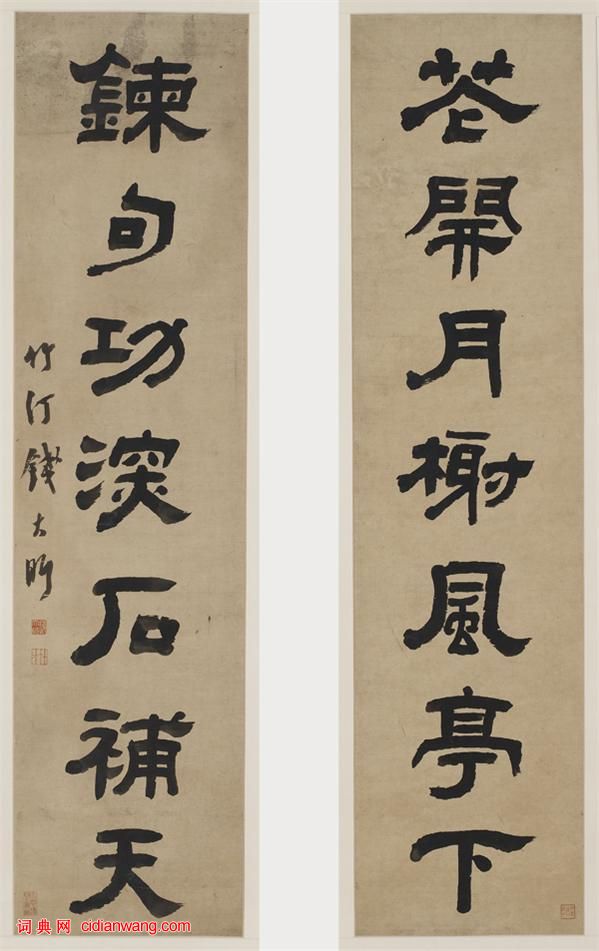 花開月榭風亭下
鍊句功深石補天
竹汀錢大昕
词典网 cidianwang.com